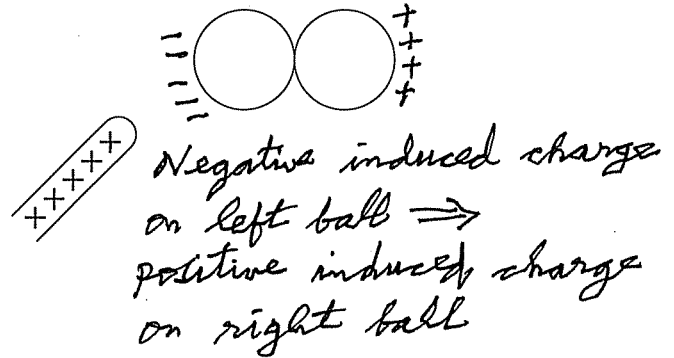 Negative induced charge
on left ball ⇒
positive induced charge
on right ball